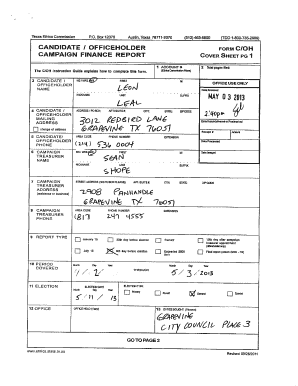 Texas Ethics Commission P.O. Box 12070 Austin, Texas 78711-2070 (512) 463-5800 (TDD 1-800-735-2989)
CANDIDATE / OFFICEHOLDER
CAMPAIGN FINANCE REPORT
FORM C/OH
COVER SHEET PG 1
The C/OH Instruction Guide explains how to complete this form.
1 ACCOUNT #
2 Total pages filed:
3 CANDIDATE / OFFICEHOLDER NAME
LEON
LEAL
OFFICE USE ONLY
MAY 03 2013
2:40pm
4 CANDIDATE / OFFICEHOLDER MAILING ADDRESS
change of address
3012 REDBIRD LANE
GRAPEVINE TX 76051
5 CANDIDATE / OFFICEHOLDER PHONE
AREA CODE PHONE NUMBER EXTENSION
(214) 536 0004
6 CAMPAIGN TREASURER NAME
SEAN
SHOPE
7 CAMPAIGN TREASURER ADDRESS
2908 PANHANDLE
GRAPEVINE TX 76051
8 CAMPAIGN TREASURER PHONE
AREA CODE PHONE NUMBER EXTENSION
(817) 247 4555
9 REPORT TYPE
January 15
30th day before election
Runoff
July 15
8th day before election
10 PERIOD COVERED
1 / 2 / THROUGH 5 / 3 / 2013
11 ELECTION
ELECTION DATE
5 / 11 / 13
ELECTION TYPE
Primary
Runoff
General
Special
12 OFFICE
OFFICE HELD
13 OFFICE SOUGHT
GRAPEVINE
CITY COUNCIL PLACE 3
GO TO PAGE 2
Revised 09/28/2011